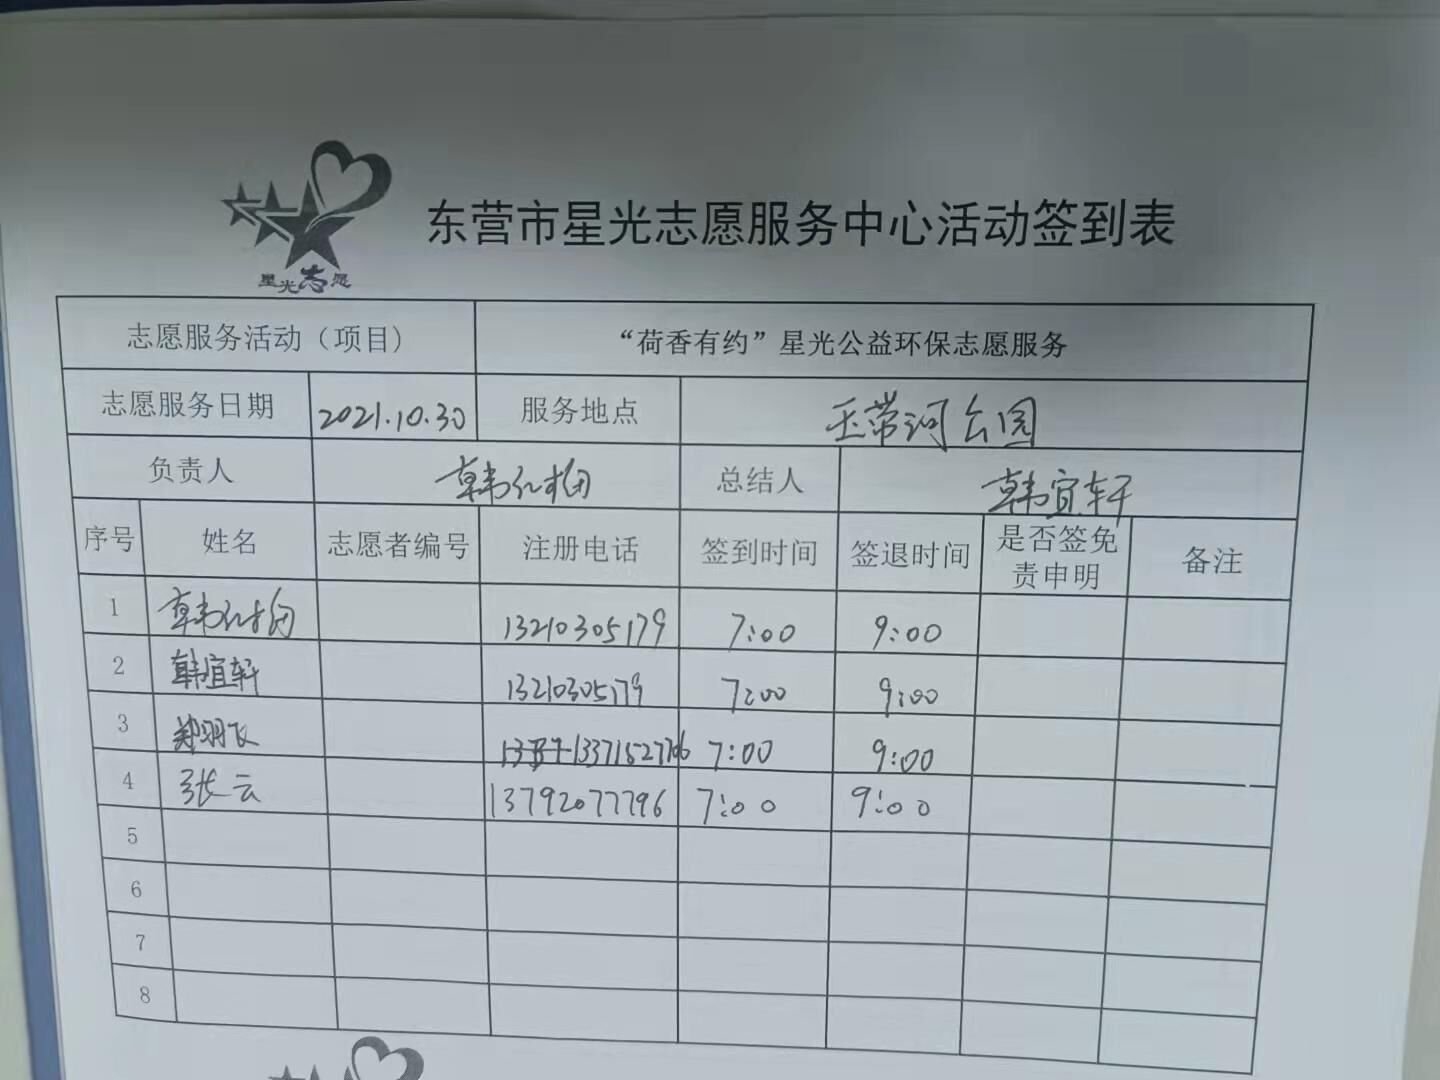 星光志愿
东营市星光志愿服务中心活动签到表
志愿服务活动（项目） “荷香有约”星光公益环保志愿服务
志愿服务日期 2021.10.30 服务地点 玉带河公园
负责人 韩红梅 总结人 韩宜轩
序号 姓名 志愿者编号 注册电话 签到时间 签退时间 是否签免责申明 备注
1 韩红梅 13210305179 7:00 9:00
2 韩宜轩 13210305179 7:00 9:00
3 郑羽飞 13371527706 7:00 9:00
4 张云 13792077796 7:00 9:00
5
6
7
8